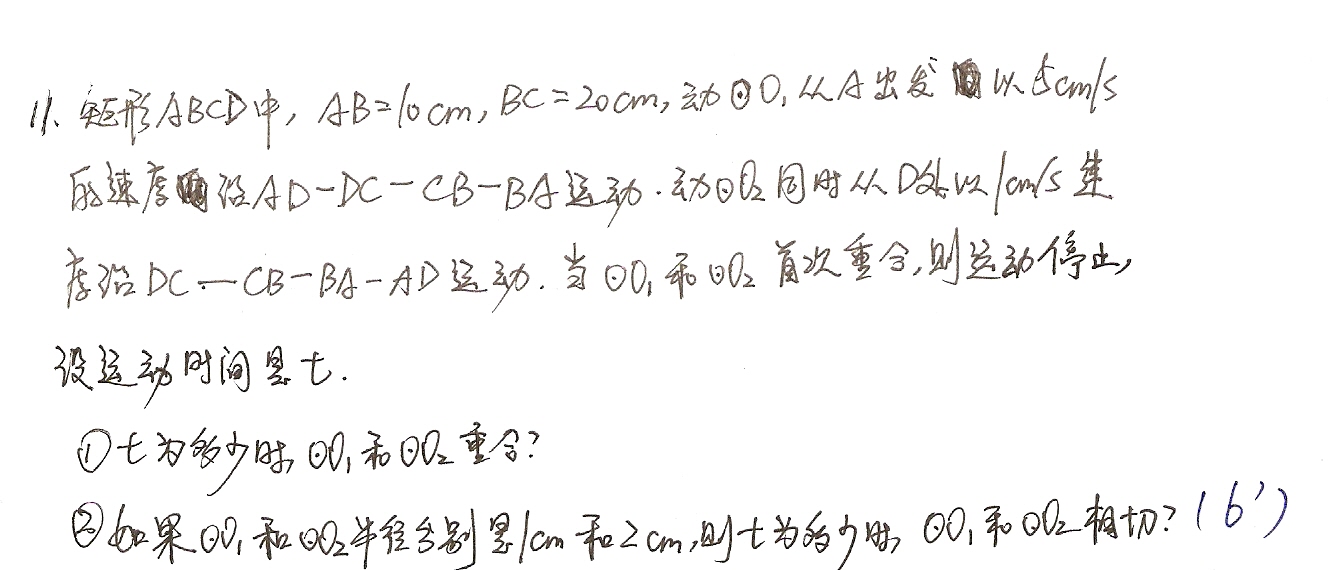 11. 矩形ABCD中, AB=10cm, BC=20cm, 动⊙O₁从A出发以5cm/s
的速度沿AD-DC-CB-BA运动. 动⊙O₂同时从D处以1cm/s速
度沿DC-CB-BA-AD运动. 当⊙O₁和⊙O₂首次重合, 则运动停止,
设运动时间是t.
①t为多少时, ⊙O₁和⊙O₂重合?
②如果⊙O₁和⊙O₂半径分别是1cm和2cm, 则t为多少时, ⊙O₁和⊙O₂相切? (6')